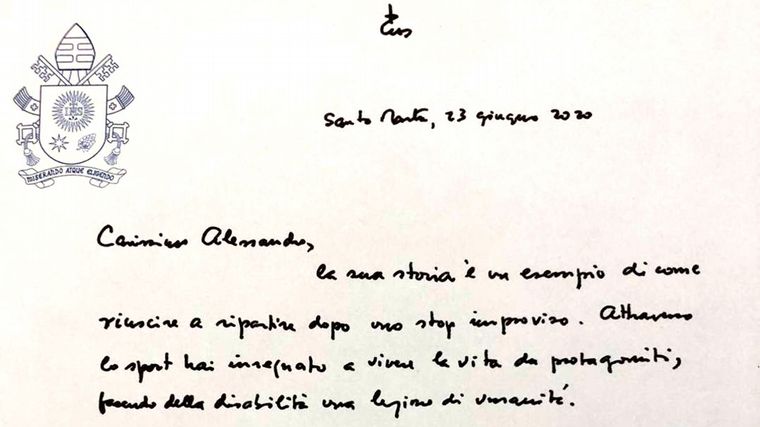 IHS
MISERANDO ATQUE ELIGENDO
Santa Marta, 23 giugno 2020
Carissimo Alessandro,
la sua storia è un esempio di come
riuscire a ripartire dopo uno stop improviso. Attraverso
lo sport hai insegnato a vivere la vita da protagonisti,
facendo della disabilità una lezione di umanità.